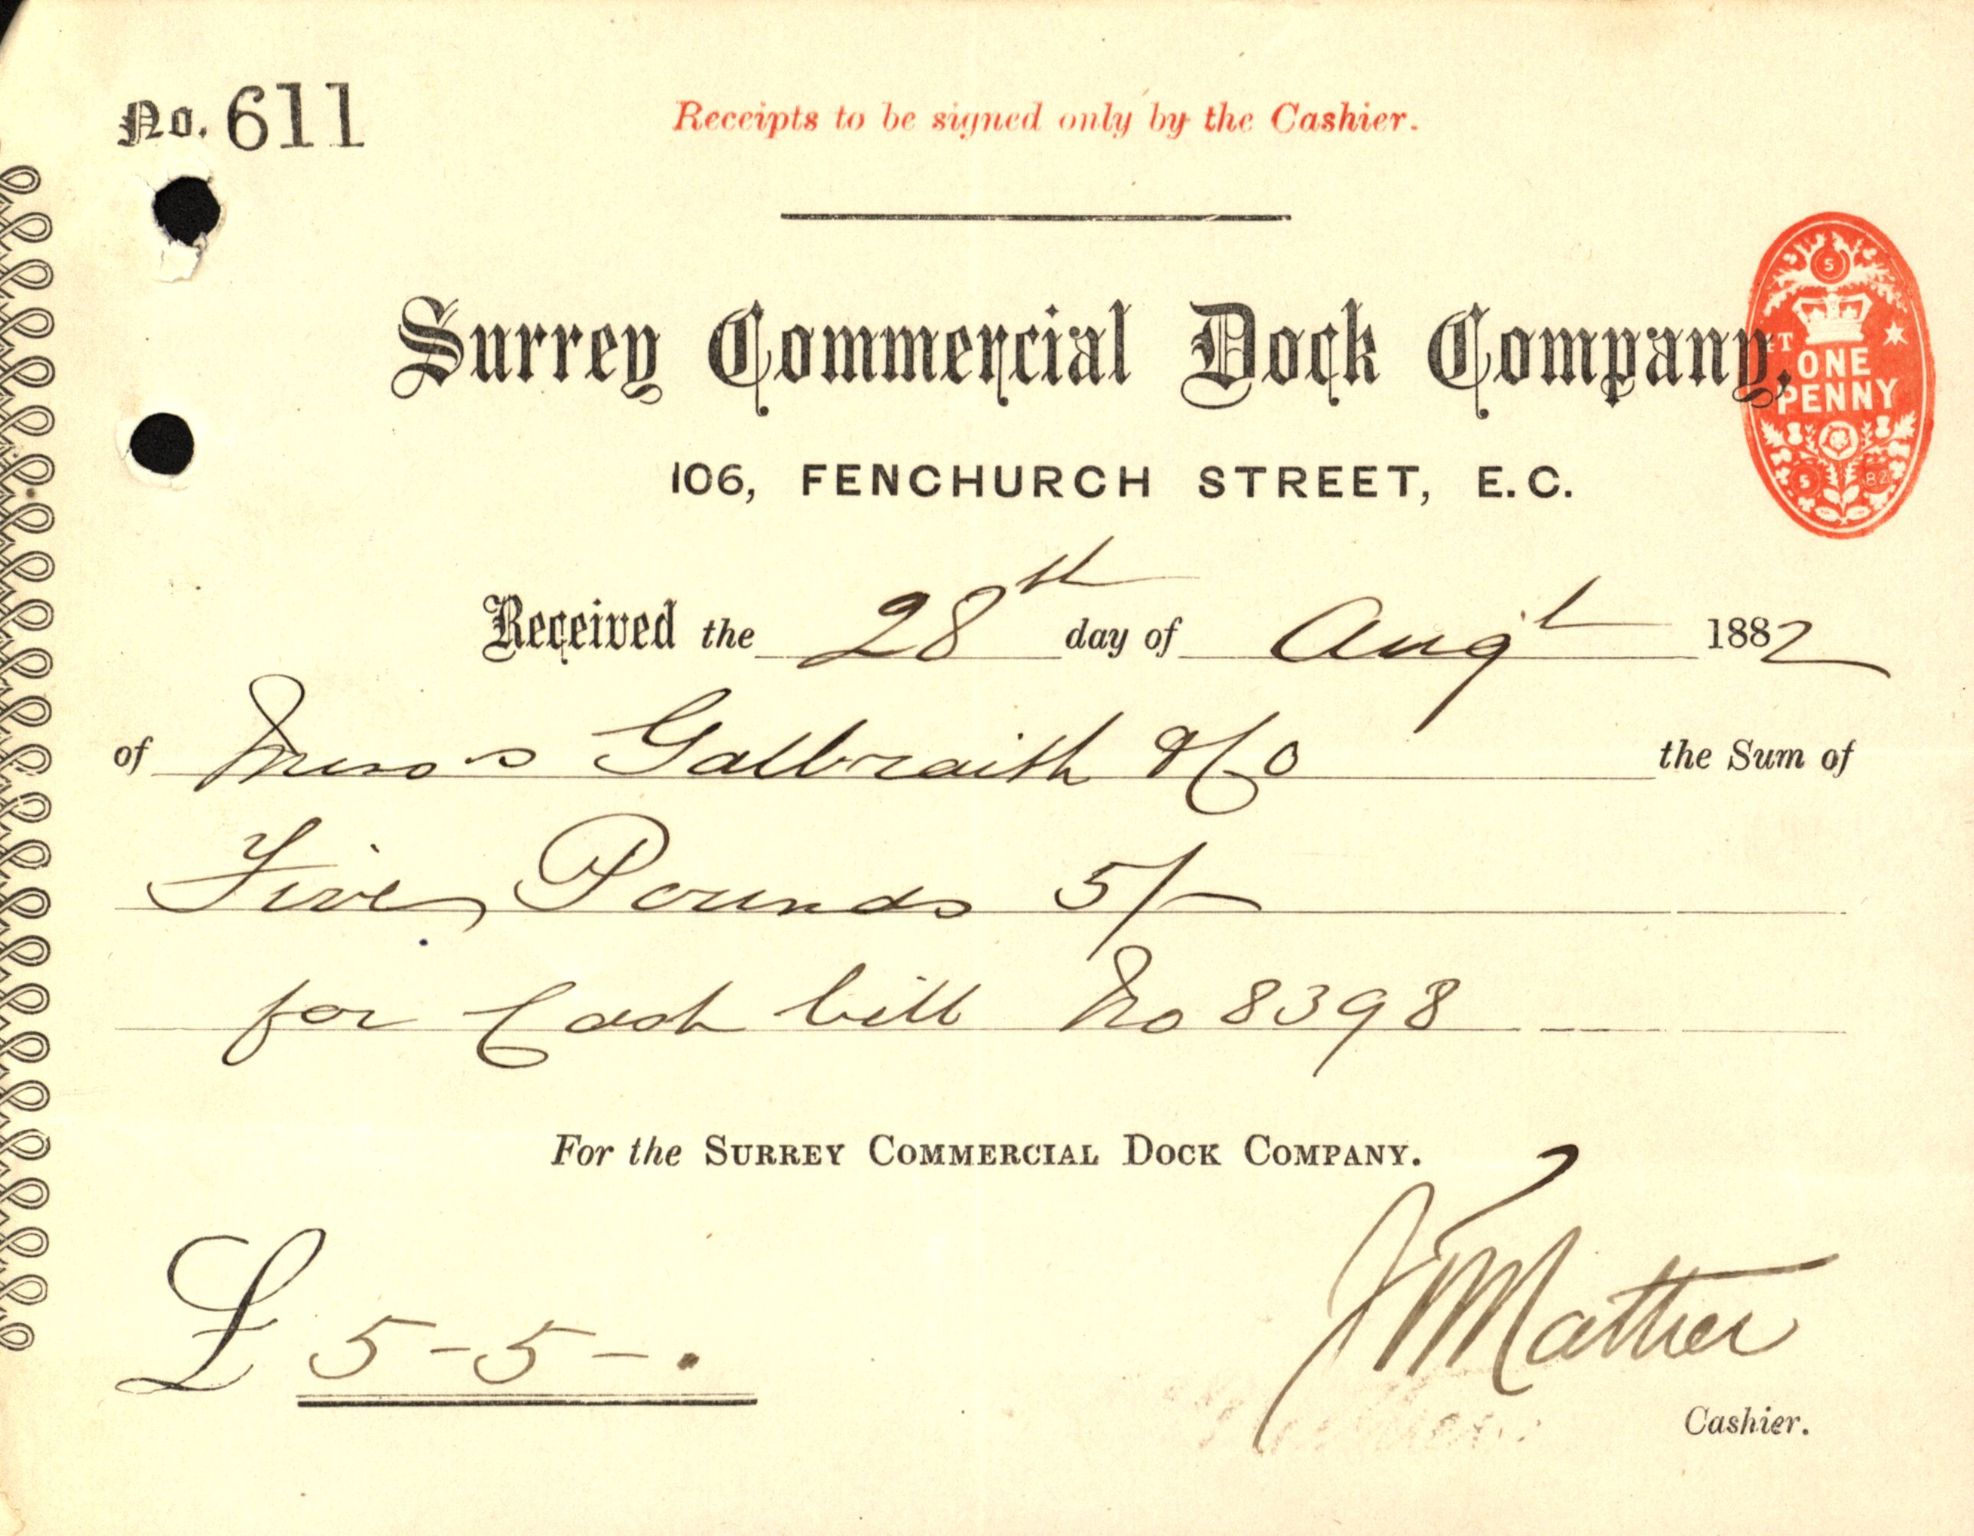 No. 611
Receipts to be signed only by the Cashier.
Surrey Commercial Dock Company,
ONE
PENNY
106, FENCHURCH STREET, E.C.
Received the 28th day of Augt 1882
of Messrs Galbraith & Co the Sum of
Five Pounds 5/-
for Cash bill No 8398
For the SURREY COMMERCIAL DOCK COMPANY.
£ 5-5-.
J Mather
Cashier.